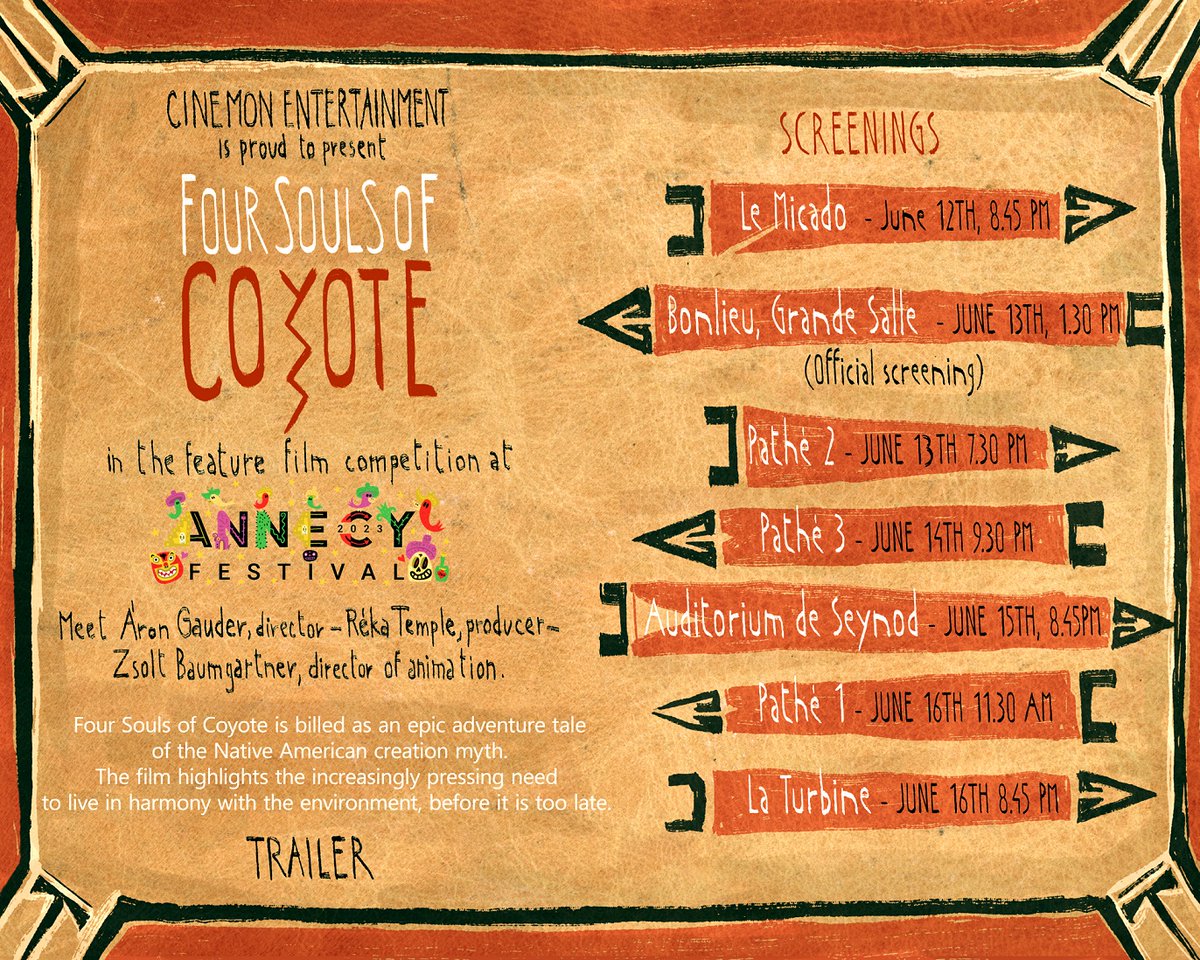 CINEMON ENTERTAINMENT
is proud to present
FOUR SOULS OF
COYOTE
in the feature film competition at
ANNECY
2023
FESTIVAL
Meet Áron Gauder, director – Réka Temple, producer –
Zsolt Baumgartner, director of animation.
Four Souls of Coyote is billed as an epic adventure tale
of the Native American creation myth.
The film highlights the increasingly pressing need
to live in harmony with the environment, before it is too late.
TRAILER
SCREENINGS
Le Micado - June 12TH, 8.45 PM
Bonlieu, Grande Salle - JUNE 13TH, 1.30 PM
(Official screening)
Pathé 2 - JUNE 13TH 7.30 PM
Pathé 3 - JUNE 14TH 9.30 PM
Auditorium de Seynod - JUNE 15TH, 8.45PM
Pathé 1 - JUNE 16TH 11.30 AM
La Turbine - JUNE 16TH 8.45 PM